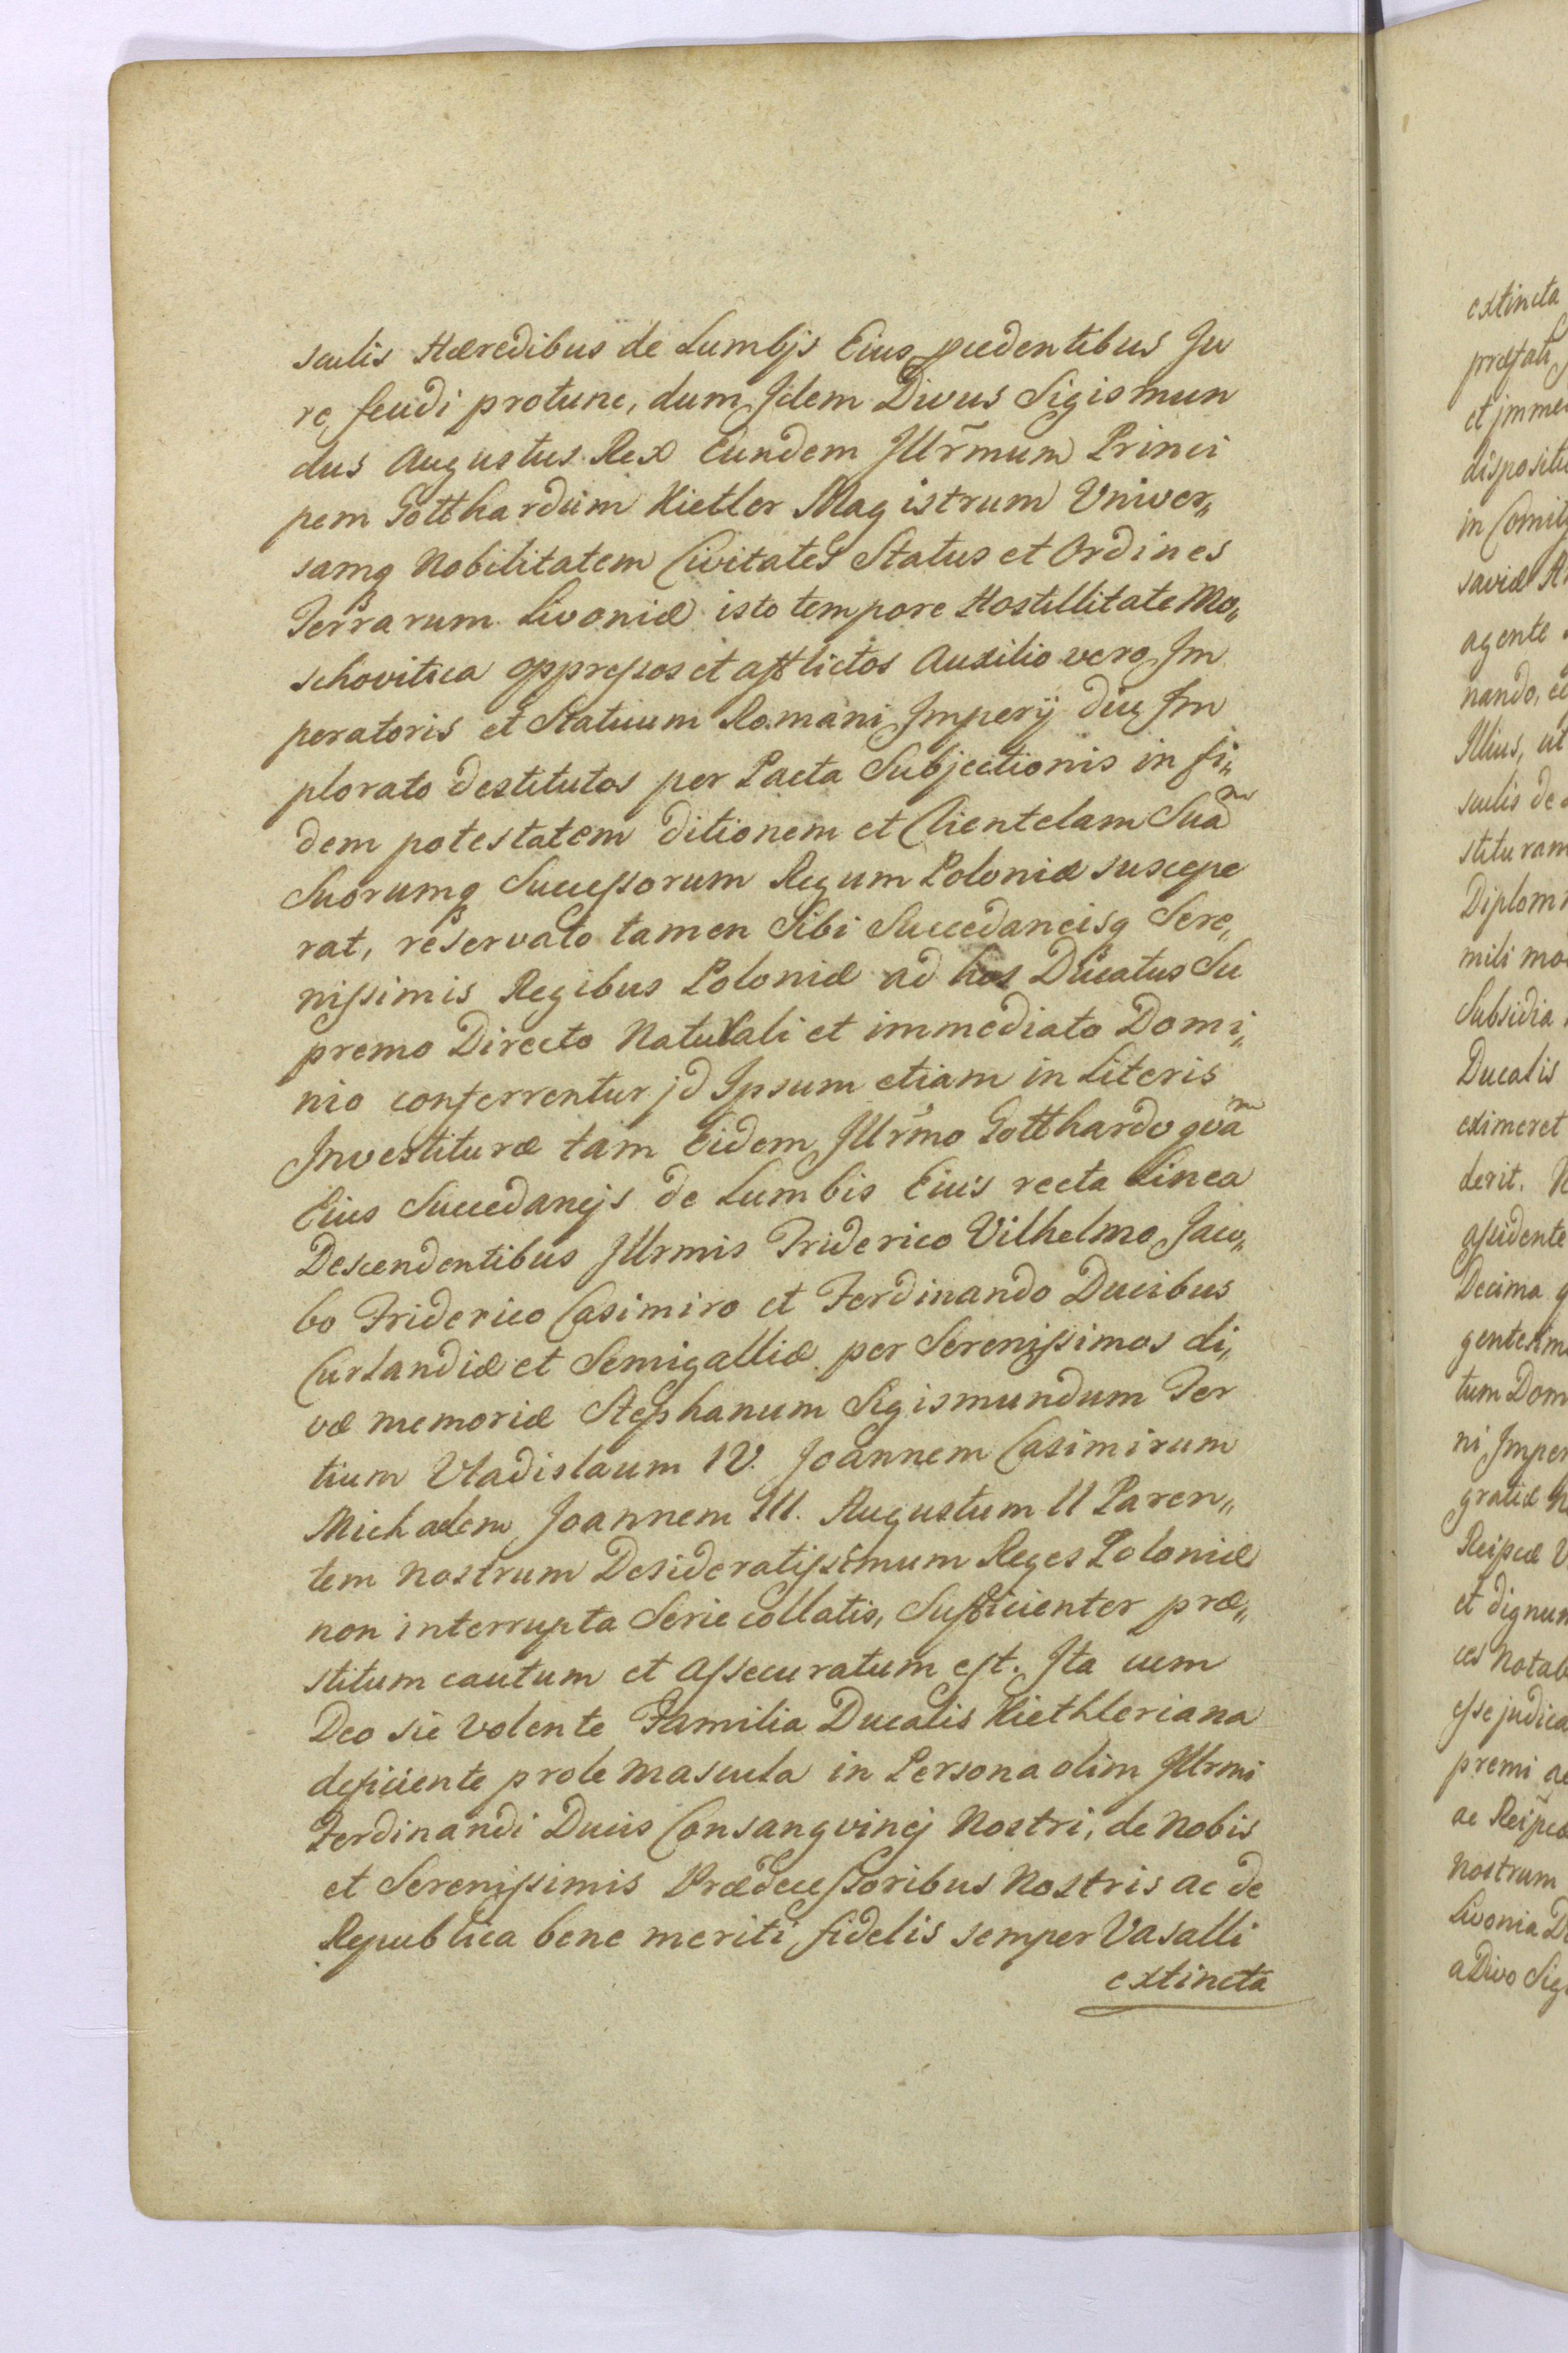 sculis Hæredibus de Lumbjs Eius pcedentibus Ju
re feudi protunc, dum Jdem Divus Sigismun
dus Augustus Rex Eundem Jllr̃mum Princi
pem Gotthardum Kietler Magistrum Univer„
samq Nobilitatem Civitates Status et Ordines
Terrarum Livoniæ isto tempore Hostillitate Mo„
schovitica oppressos et afflictos Auxilio vero Jm
peratoris et Statuum Romani Jmperij diu Jm
plorato destitutos per Pacta Subjectionis in fi„
dem potestatem ditionem et Clientelam Suam
Suorumq Successorum Regum Poloniæ suscepe
rat, reservato tamen Sibi Succedaneisq Sere„
nissimis Regibus Poloniæ ad hos Ducatus Su
premo Directo Naturali et immediato Domi„
nio conferrentur jd Jpsum etiam in Literis
Jnvestituræ tam Eidem Jllr̃mo Gotthardo qvam
Eius Succedanejs de Lumbis Eius recta Linea
Descendentibus Jllrmis Friderico Vilhelmo Jaco„
bo Friderico Casimiro et Ferdinando Ducibus
Curlandiæ et Semigalliæ per Serenissimos di„
væ memoriæ Stephanum Sigismundum Ter
tium Vladislaum IV. Joannem Casimirum
Michaelem Joannem III. Augustum II Paren„
tem nostrum Desideratissimum Reges Poloniæ
non interrupta Serie collatis, Sufficienter præ„
stitum cautum et assecuratum est. Jta cum
Deo sic volente Familia Ducalis Kiethleriana
deficiente prole mascula in Persona olim Jllrmi
Ferdinandi Ducis Consangvinej Nostri, de Nobis
et Serenissimis Prædecessoribus Nostris ac de
Republica bene meriti fidelis semper Vasalli
extincta
extincta
præfati
et jmme
disposit
in Comit
saviæ
agente
nando,
Illius, ut
sculis de
stituram
Diplom
mili mo
Subsidia
Ducalis
eximeret
derit.
assidente
Decima
gentesim
tum Dom
ni Jmper
gratiæ
Reipcæ
et dignum
ces notab
esse judica
premi
ac Reipcæ
nostrum
Livonia
a Divo Sig